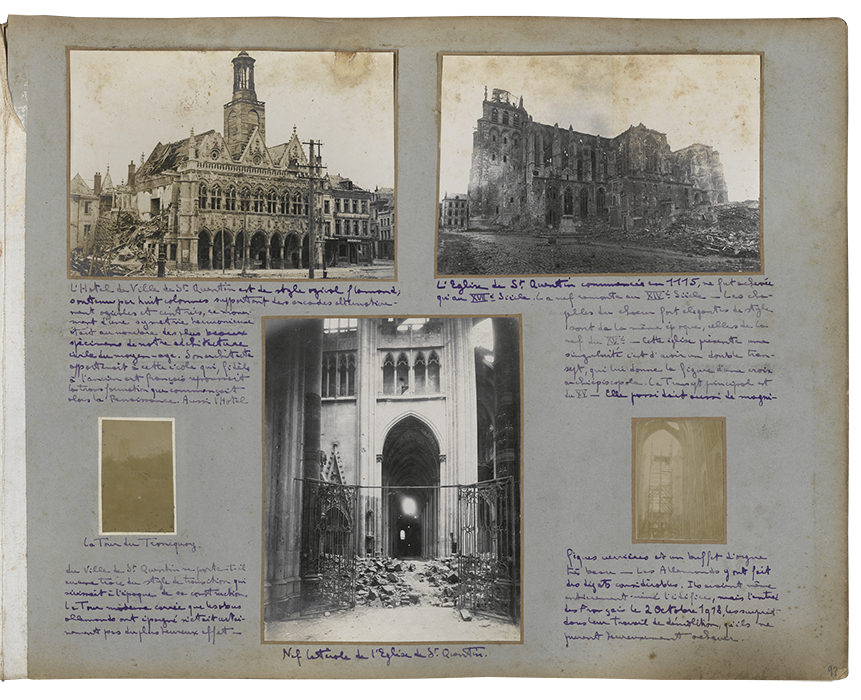 L'Hotel de Ville de St Quentin est de style ogival flamand,
soutenu par huit colonnes supportant des arcades alternative-
ment ogivales et cintrées, ce monu-
ment d'une symétrie harmonieuse
était au nombre des plus beaux
spécimens de notre architecture
civile du moyen-age. Son architecte
appartenait à cette école qui, fidèle
à l'ancien art français repoussait
la transformation que commençait
alors la Renaissance. Aussi l'Hotel
La Tour du Tronquoy.
de Ville de St Quentin ne porte-t-il
aucune trace du style de transition qui
régnait à l'époque de sa construction.
La Tour moderne carrée que les obus
allemands ont épargné n'était
pas du plus heureux effet —
L'Eglise de St Quentin commencée en 1115, ne fut achevée
qu'au XVIIe Siècle. La nef remonte au XIVe Siècle — Les cha-
pelles du choeur fort élégantes de style
sont de la même époque, celles de la
nef du XVe — Cette église présente une
singularité c'est d'avoir un double tran-
sept, qui lui donne la figure d'une croix
archiépiscopale. Le Transept principal est
du XVe — Elle possédait aussi de magni-
fiques verrières et un buffet d'orgue
très beau — Les Allemands y ont fait
des dégats considérables. Ils avaient même
miné l'édifice, mais l'entrée
des Français le 2 Octobre 1918, les surprit
dans leur travail de démolition, qu'ils ne
purent heureusement achever.
Nef latérale de l'Eglise de St Quentin.